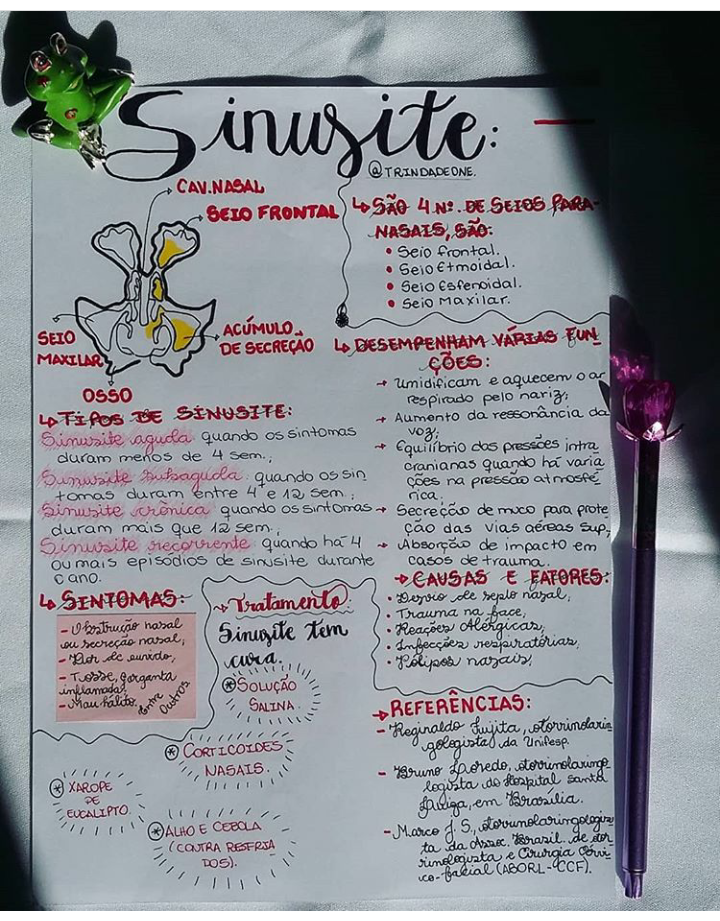 Sinusite:
@TRINDADEONE.
CAV.NASAL
SEIO FRONTAL
SEIO
MAXILAR
ACÚMULO
DE SECREÇÃO
OSSO
SÃO 4 Nº. DE SEIOS PARA-
NASAIS, SÃO:
• Seio frontal.
• Seio Etmoidal.
• Seio Esfenoidal.
• Seio Maxilar.
DESEMPENHAM VÁRIAS FUN
ÇÕES:
→ Umidificam e aquecem o ar
respirado pelo nariz;
→ Aumento da ressonância da
voz;
→ Equilíbrio das pressões intra
cranianas quando há varia
ções na pressão atmosfé
rica;
→ Secreção de muco para prote
ção das vias aéreas sup;
→ Absorção de impacto em
casos de trauma.
TIPOS DE SINUSITE:
Sinusite aguda: quando os sintomas
duram menos de 4 sem.;
Sinusite subaguda: quando os sin
tomas duram entre 4 e 12 sem.;
Sinusite crônica: quando os sintomas
duram mais que 12 sem;
Sinusite recorrente: quando há 4
ou mais episódios de sinusite durante
o ano.
→ CAUSAS E FATORES:
• Desvio de septo nasal;
• Trauma na face;
• Reações Alérgicas;
• Infecções respiratórias;
• Pólipos nasais;
SINTOMAS:
- Obstrução nasal
ou secreção nasal;
- Dor de ouvido;
- Tosse, garganta
inflamada;
- Mau hálito, dentre
outros
→ Tratamento:
Sinusite tem
cura.
SOLUÇÃO
SALINA.
CORTICOIDES
NASAIS.
XAROPE
DE
EUCALIPTO.
ALHO E CEBOLA
(CONTRA RESFRIA
DOS).
→ REFERÊNCIAS:
- Reginaldo Fujita, otorrinolarin
gologista da Unifesp.
- Bruno Loredo, otorrinolaringo
logista do Hospital Santa
Luzia, em Brasília.
- Marco J. S., otorrinolaringologis
ta da Assoc. Brasil. de otor
rinologista e Cirurgia Cérvi
co-facial (ABORL-CCF).